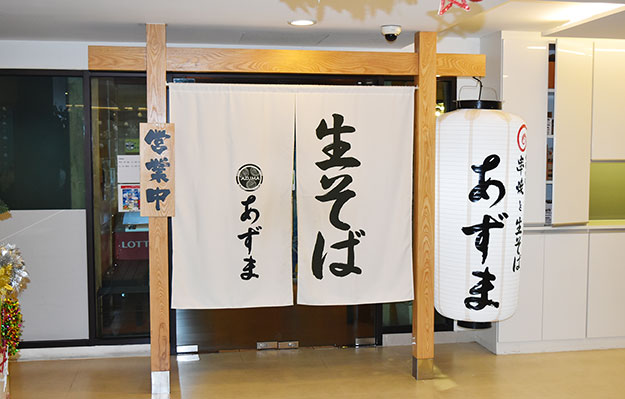 営業中
生そば
AZUMA
あずま
串焼と生そば
あずま
LOTT